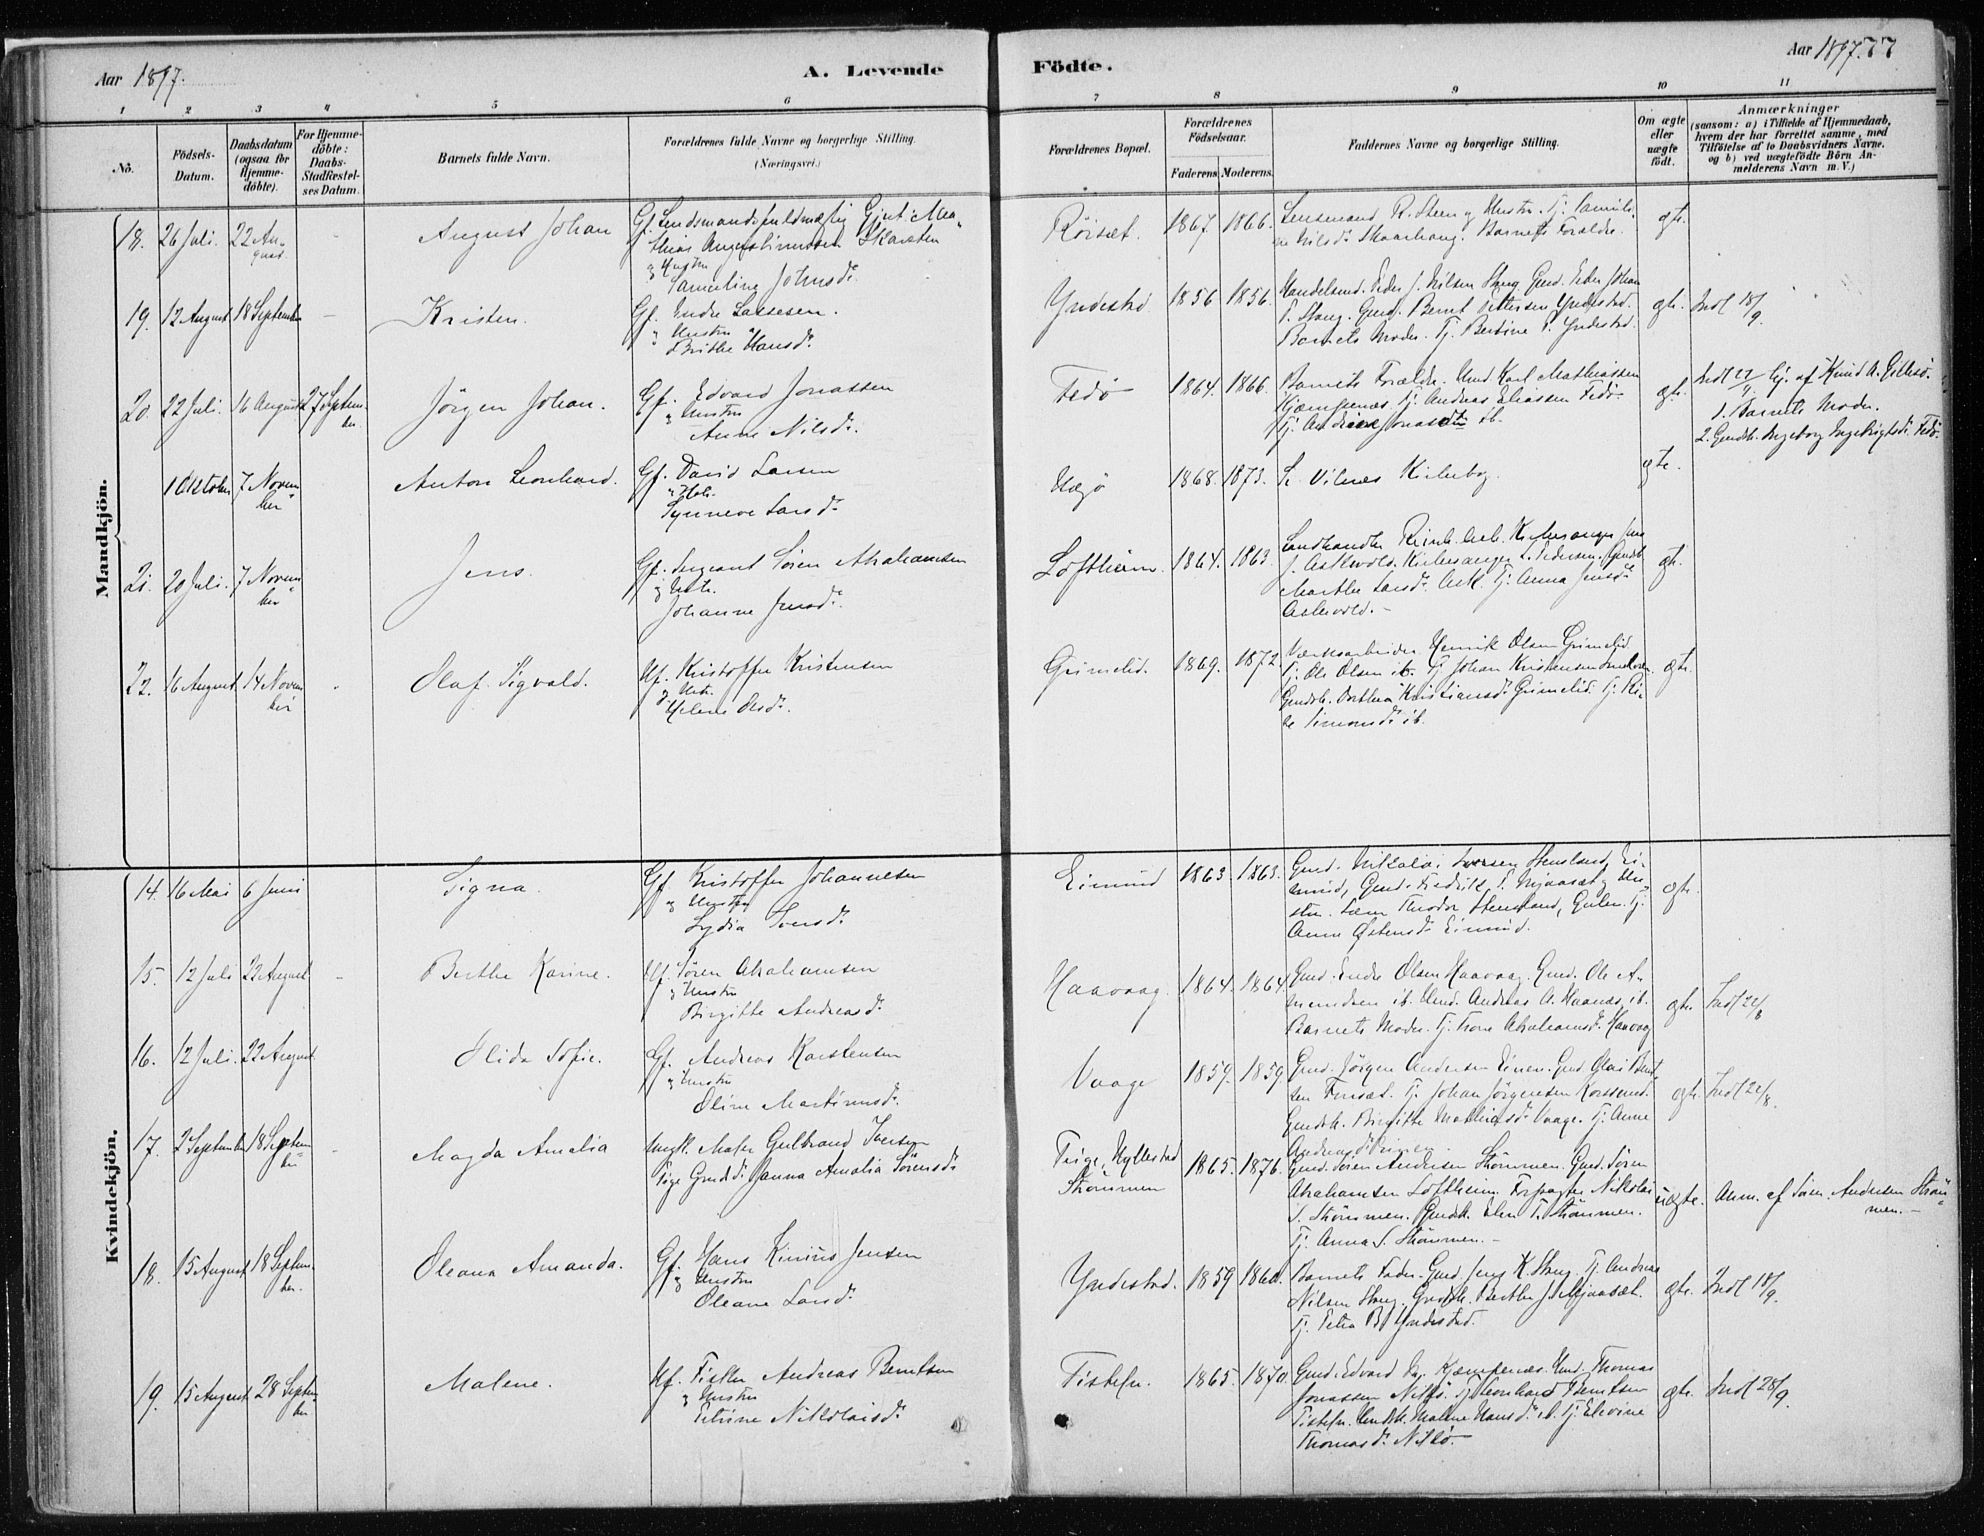 Aar 1897.
A. Levende
Födte.
Aar 1897. 77
1 2 3 4 5 6 7 8 9 10 11
No.
Födsels-Datum.
Daabsdatum (ogsaa for Hjemme-döbte).
For Hjemme-döbte: Daabs-Stadfæstel-ses Datum.
Barnets fulde Navn.
Forældrenes fulde Navne og borgerlige Stilling. (Næringsvei.)
Forældrenes Bopæl.
Forældrenes Födselsaar.
Faderens Moderens.
Faddernes Navne og borgerlige Stilling.
Om ægte eller uægte födt.
Anmærkninger
(saasom: a) i Tilfælde af Hjemmedaab,
hvem der har forrettet samme, med
Tilföielse af to Daabsvidners Navne.
og b) ved uægtefödte Börn An-
melderens Navn m. V.)
Mandkjön.
18. 26 Juli. 22 August - August Johan
Gf. Lendsmandsfuldmægtig Gjert Ma-
thias Augustinussen Skarsten
og Hustru
Samueline Johnsd.
Röisæt. 1867 1866.
Lensmand R. Steen og Hustru. Tj.
Nilsd. Skaarhaug. Barnets Forældre.
ægte.
19. 12 August 18 September - Kristen.
Gf. Endre Lassesen.
og Hustru
Brithe Hansd.
Yndestad 1856 1856.
Handelsmd. Peder J. Nilsen Haug. Gmd. Peder Johan
S. Haug. Gmd. Bernt Pettersen Yndestad.
Barnets Moder. Tj. Bertine P. Yndestad.
ægte. Indl 18/9.
20. 22 Juli. 16 August 27 September Jörgen Johan.
Gf. Edvard Jonassen
og Hustru
Anne Nilsd.
Fedö 1864. 1866.
Barnets Forældre. Umd Karl Mathiassen
Kjæmpenæs Tj. Andreas Eliassen Fedö
Tj. Jonasdtr ib.
ægte.
Indl 27/9 Hj. af Knud A. Gillesö.
1. Barnets Moder.
2. Gmdk. Ingeborg Ingebrigtsd. Fedö.
1 Oktober 7 November Anton Leonhard.
Gf. David Larsen
og Hstr.
Synneve Larsd.
Hægö 1868. 1873.
Se Vilnes Kirkebog.
ægte.
21. 20 Juli. 7 November Jens.
Gf. Sergeant Sören Abrahamsen
og Hstr.
Johanne Jensd.
Loftheim 1864. 1863.
Landhandler Kirkesanger Jens
J. Askvold. Kirkesanger L. Pedersen. Gmdk.
Marthe Larsd. Ask. Tj. Anna Jensd.
Askvold. -
ægte.
22. 16 August 14 November - Olaf Sigvald.
Hf. Kristoffer Kristensen
og Hstr.
Helene Olsd.
Grimelid. 1869. 1872.
Værksarbeider Henrik Olsen Grimelid
Tj. Ole Olsen ib. Tj Johan Kristensen
Gmdk. Dorthea Kristiansd. Grimelid. Tj. Ri-
Simonsd. ib.
ægte.
Kvindekjön.
14. 16 Mai 6 Juni Signa.
Gf Kristoffer Johannesen
og Hustru
Lydia Tonsd.
Eimund 1863 1863.
Gmd. Nikolai Iversen Stensland, Ei-
mund, Gmd. Fredrik T. Mjaaset og Hu-
stru. Lærer Theodor Stensland, Gulen. Tj.
Anna Östensd. Eimund.
ægte.
15. 12 Juli 22 August - Berthe Karine.
Hf. Sören Abrahamsen
og Hustru
Birgitte Andreasd.
Haavaag. 1864. 1864.
Gmd. Endre Olsen Haavaag. Gmd. Ole A-
mundsen ib. Umd. Andreas A. Haanæs, ib.
Barnets Moder. Tj. Trone Abrahamsd. Haavaag
ægte. Indl 22/8
16. 12 Juli. 22 August. Olida Sofie.
Gf. Andreas Karstensen
og Hustru
Oline Martinusd.
Vaage 1859. 1859
Gmd. Jörgen Andersen Einen. Gmd Olai Bent-
sen Fureset. Tj. Johan Jörgensen Korssund.
Gmdk. Birgitte Mathiasd. Vaage. Tj. Anne
Andreasd.
ægte. Indl 22/8.
17. 2 September 18 September - Magda Amalia
Ungk. Maler Gulbrand Iversen
Pige Gmdd. Janna Amalia Sörensd.
Teige, Hyllestad
Strömmen 1865. 1876.
Gmd. Sören Andersen Strömmen. Gmd. Sören
Abrahamsen Loftheim. Forpagter Nikolai
S. Strömmen. Gmdk. Elen T. Strömmen.
Tj. Anna S. Strömmen. -
uægte. Anm. af Sören Andersen Ström-
men. -
18. 15 August 18 September Oleana Amanda.
Gf. Hans Kinius Jensen
og Hustru
Oleane Larsd.
Yndestad. 1859 1860.
Barnets Fader. Gmd Jens K. Haug. Tj. Andreas
Nilsen Haug. Gmdk. Berthe J. Mjaaset.
Tj. Petra B. Yndestad.
ægte. Indl 18/9.
19. 15 August 28 September Malene.
Hf. Fisker Andreas Berntsen
og Hustru
Petrine Nikolaisd.
Tistefn. 1865. 1870.
Gmd. Edvard Kjæmpenæs. Umd. Thomas
Jonassen Nitlö. Tj. Leonhard Berntsen
Tistefn. Umdk. Malene Hansd. ib. Tj. Elevine
Thomasd. Nitlö.
ægte. Indl 28/9.